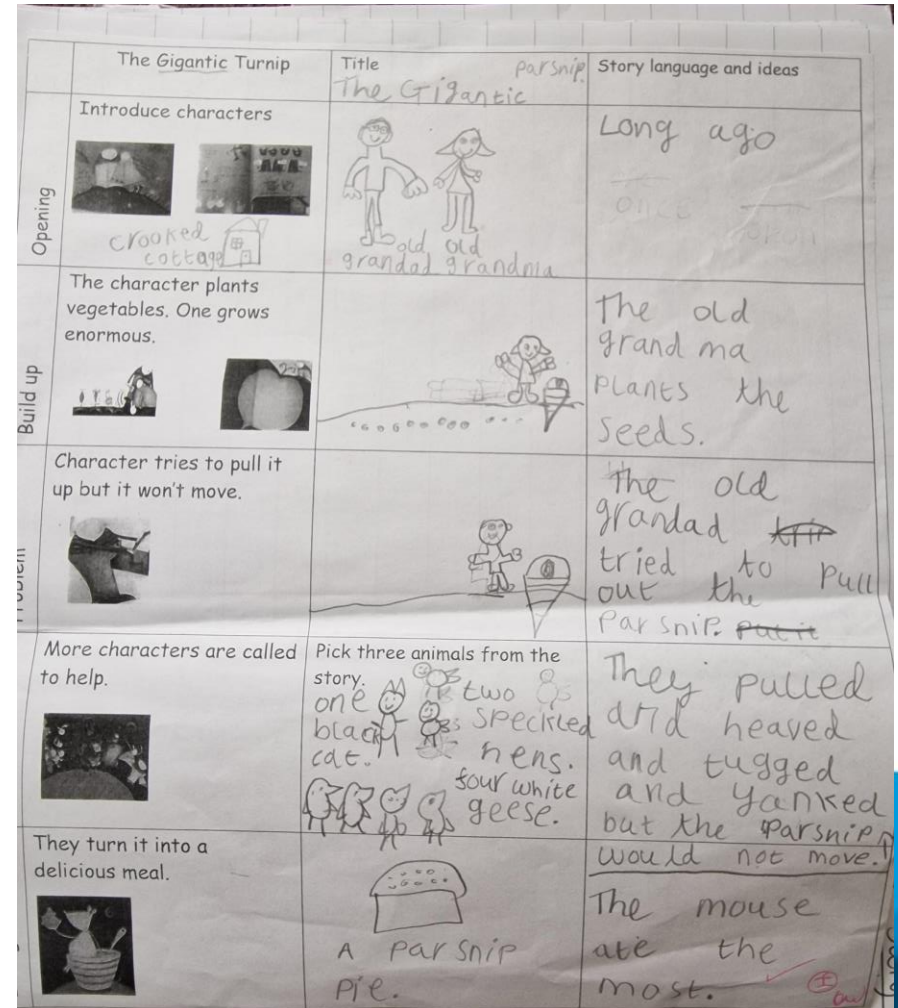 The Gigantic Turnip
Title
parsnip
The Gigantic
Story language and ideas
Opening
Introduce characters
crooked
cottage
old old
grandad grandma
Long ago
once
upon
Build up
The character plants
vegetables. One grows
enormous.
The old
grand ma
plants the
seeds.
Problem
Character tries to pull it
up but it won't move.
The old
grandad
tried to pull
out the
parsnip. put it
More characters are called
to help.
Pick three animals from the
story.
one
black
cat.
two
speckled
hens.
four white
geese.
They pulled
and heaved
and tugged
and yanked
but the parsnip
would not move.
They turn it into a
delicious meal.
A parsnip
pie.
The mouse
ate the
most.